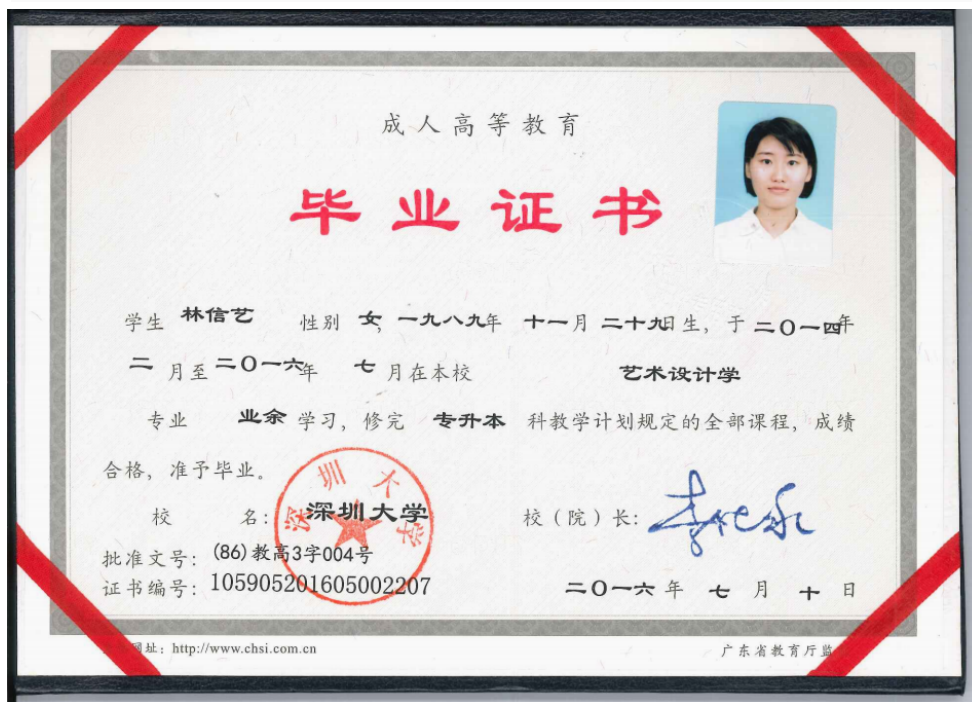 成人高等教育
毕业证书
学生 林信艺 性别 女, 一九八九年 十一月 二十九日生, 于 二〇一四年
二 月至 二〇一六年 七 月在本校 艺术设计学
专业 业余 学习, 修完 专升本 科教学计划规定的全部课程, 成绩
合格, 准予毕业。
深圳大学
校 名: 深圳大学 校(院)长:
批准文号: (86)教高3字004号
证书编号: 105905201605002207 二〇一六年 七 月 十 日
网址: http://www.chsi.com.cn 广东省教育厅监